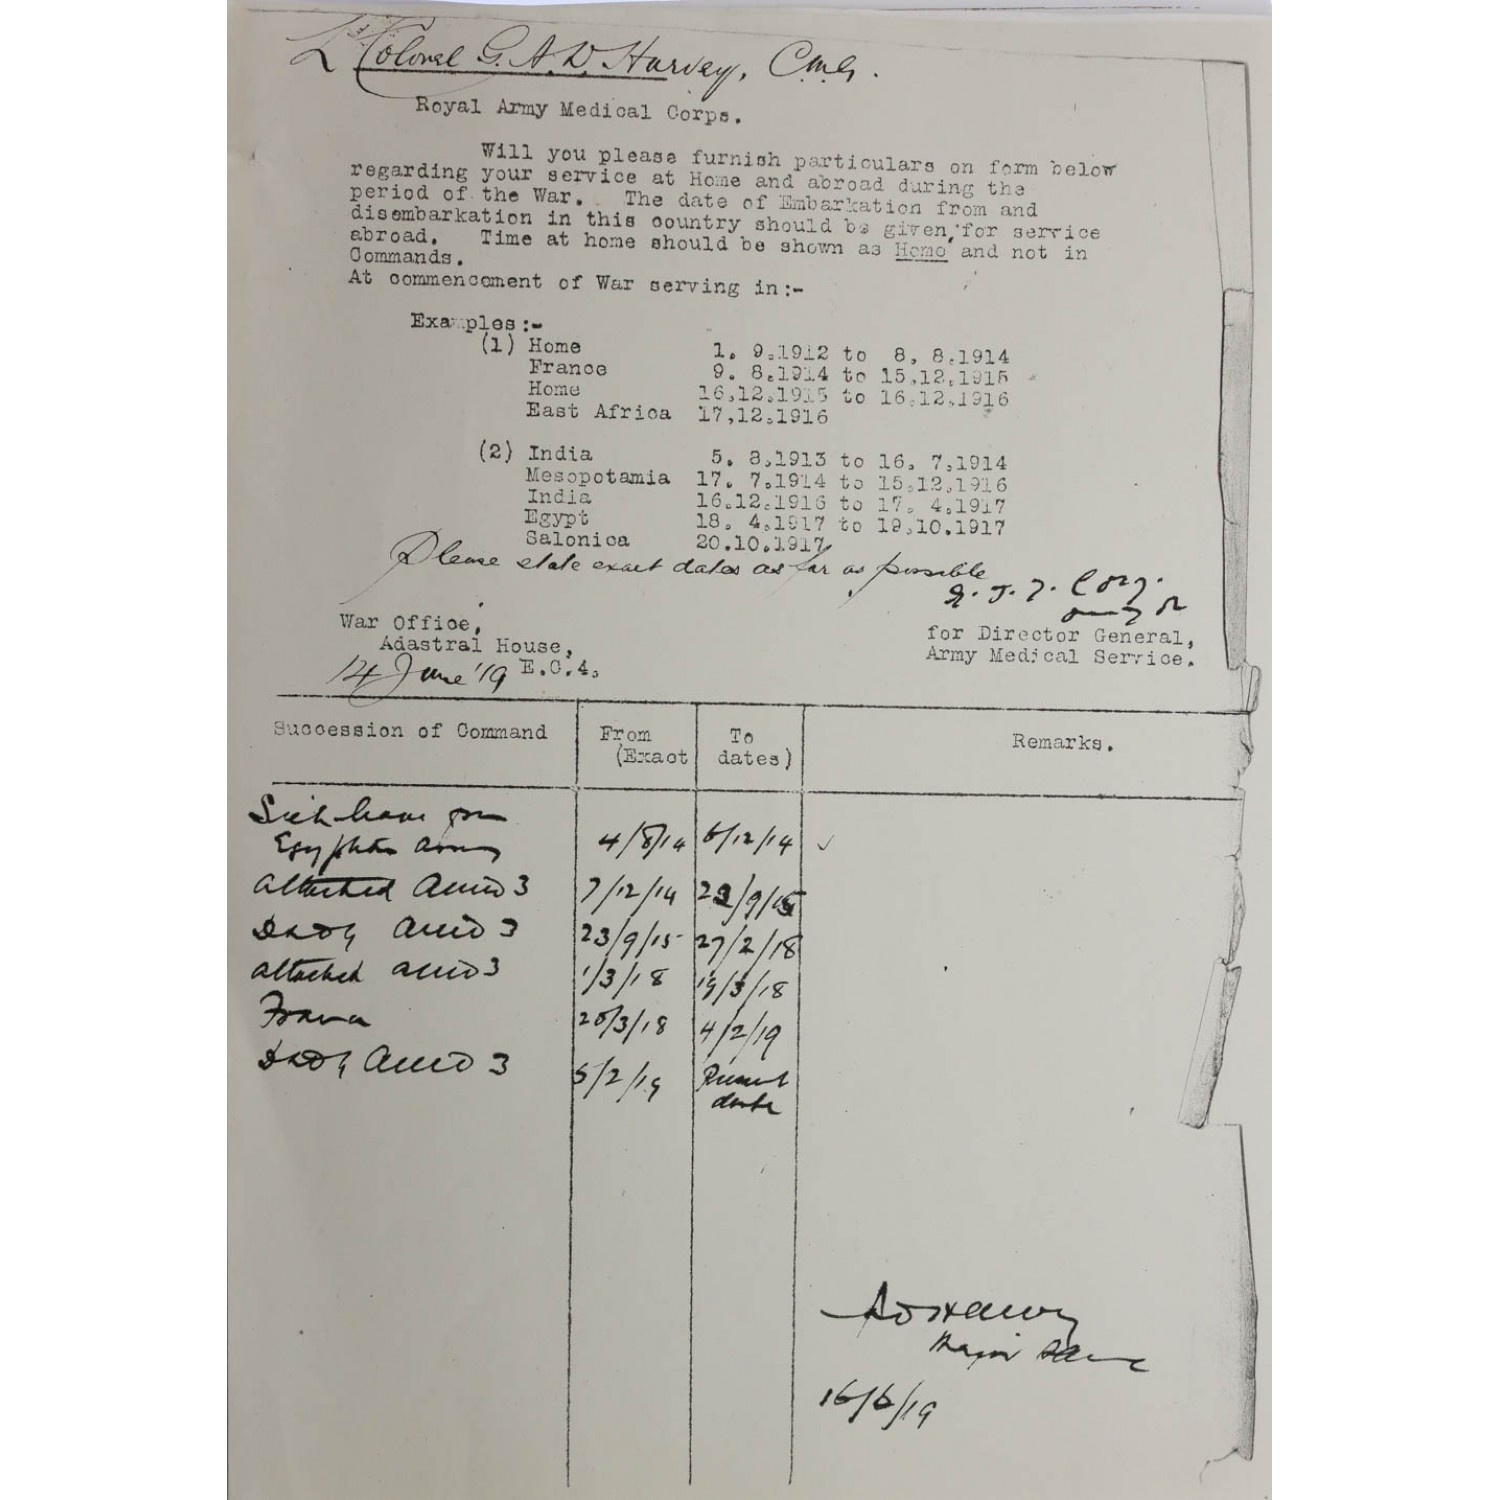 Lt Colonel G. A. D. Harvey, C.M.G.
Royal Army Medical Corps.
Will you please furnish particulars on form below
regarding your service at Home and abroad during the
period of the War. The date of Embarkation from and
disembarkation in this country should be given, for service
abroad. Time at home should be shown as Home, and not in
Commands.
At commencement of War serving in:-
Examples:-
(1) Home 1. 9.1912 to 8. 8.1914
France 9. 8.1914 to 15.12.1915
Home 16.12.1915 to 16.12.1916
East Africa 17.12.1916
(2) India 5. 8.1913 to 16. 7.1914
Mesopotamia 17. 7.1914 to 15.12.1916
India 16.12.1916 to 17. 4.1917
Egypt 18. 4.1917 to 19.10.1917
Salonica 20.10.1917
Please state exact dates as far as possible
for Director General,
Army Medical Service.
War Office,
Adastral House,
E.C.4.
14 June '19
Succession of Command From To Remarks.
(Exact dates)
Sick leave from
Egyptian Army 4/8/14 6/12/14 ✓
Attached AMD 3 7/12/14 22/9/15
DADG AMD 3 23/9/15 27/2/18
attached AMD 3 1/3/18 19/3/18
France 20/3/18 4/2/19
DADG AMD 3 5/2/19 Present
date
Harvey
Major RAMC
16/6/19